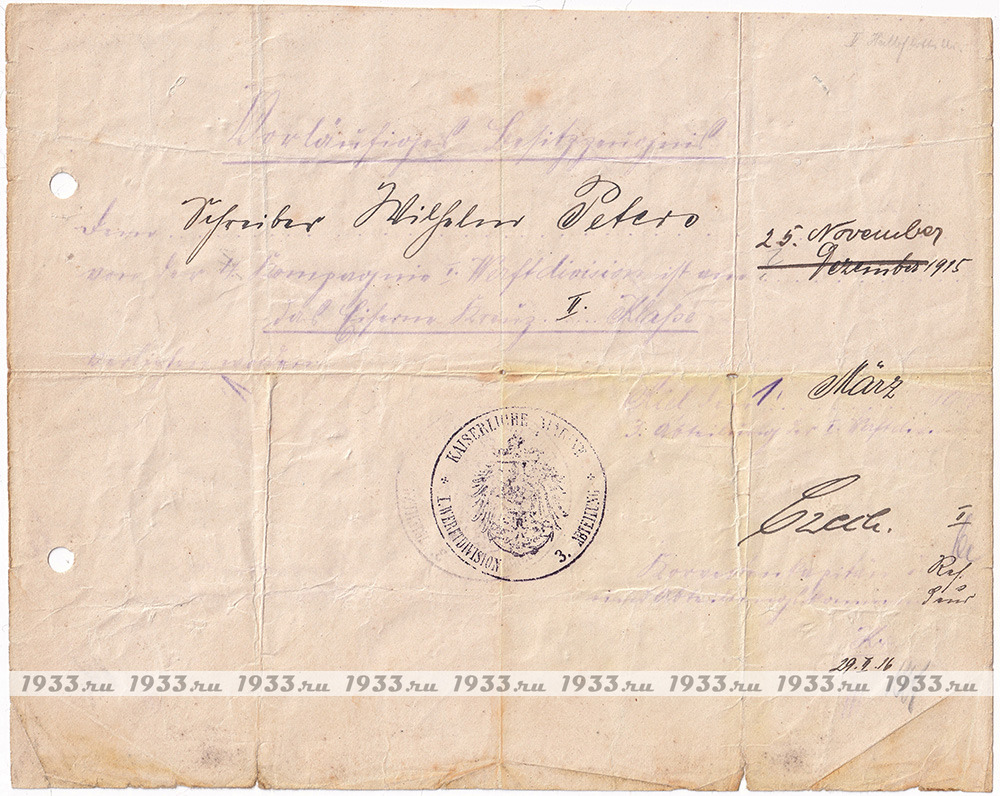 Vorläufiges Besitzzeugnis
Dem Schreiber Wilhelm Peters
25. November
von der Kompagnie I. Werftdivision ist am Dezember 1915
das Eiserne Kreuz II. Klasse
verliehen worden.
Kiel 1. März
3. Abteilung der I. Werftdivision
KAISERLICHE MARINE
I. WERFTDIVISION
3. ABTEILUNG
Czech.
II
Korvettenkapitän
und Abteilungskommandeur
29. II. 16
1933.ru 1933.ru 1933.ru 1933.ru 1933.ru 1933.ru 1933.ru 1933.ru 1933.ru